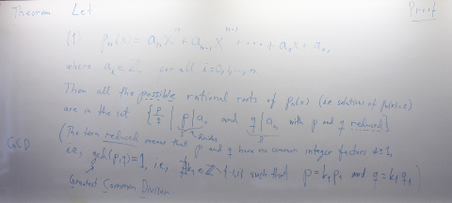 Theorem Let Proof
(1) pₙ(x) = aₙxⁿ + aₙ₋₁xⁿ⁻¹ + ... + a₁x + a₀,
where aᵢ ∈ ℤ, for all i=0,1,...,n.
Then all the possible rational roots of pₙ(x) (i.e. solutions of pₙ(x)=0)
are in the set { p/q | p | a₀ and q | aₙ with p and q reduced }
divides
(The term reduced means that p and q have no common integer factors ≠±1,
GCD i.e., gcd(p,q)=1, i.e., ∄k₁ ∈ ℤ\{-1,1} such that p=k₁p₁ and q=k₁q₁)
Greatest Common Divisor